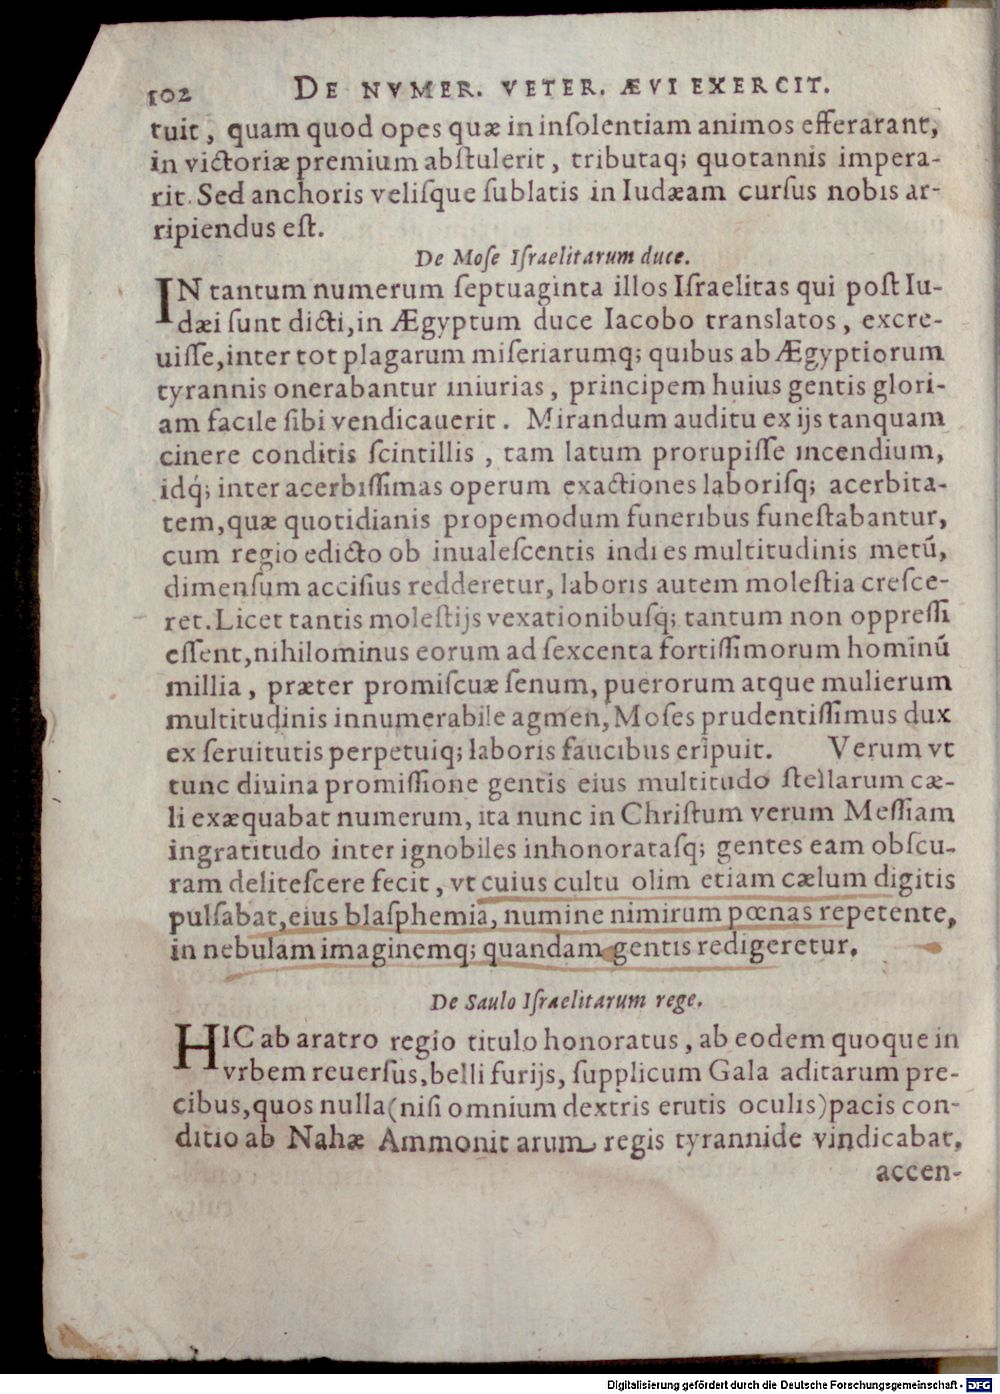 102 DE NVMER. VETER. ÆVI EXERCIT.
tuit, quam quod opes quæ in inſolentiam animos efferarant,
in victoriæ premium abſtulerit, tributaq; quotannis impera-
rit. Sed anchoris veliſque ſublatis in Iudæam curſus nobis ar-
ripiendus eſt.
De Moſe Iſraelitarum duce.
IN tantum numerum ſeptuaginta illos Iſraelitas qui poſt Iu-
dæi ſunt dicti, in Ægyptum duce Iacobo translatos, excre-
uiſſe, inter tot plagarum miſeriarumq; quibus ab Ægyptiorum
tyrannis onerabantur iniurias, principem huius gentis glori-
am facile ſibi vendicauerit. Mirandum auditu ex ijs tanquam
cinere conditis ſcintillis, tam latum prorupiſſe incendium,
idq́; inter acerbiſſimas operum exactiones laboriſq; acerbita-
tem, quæ quotidianis propemodum funeribus funeſtabantur,
cum regio edicto ob inualeſcentis indies multitudinis metũ,
dimenſum acciſius redderetur, laboris autem moleſtia creſce-
ret. Licet tantis moleſtijs vexationibuſq; tantum non oppreſſi
eſſent, nihilominus eorum ad ſexcenta fortiſſimorum hominũ
millia, præter promiſcuæ ſenum, puerorum atque mulierum
multitudinis innumerabile agmen, Moſes prudentiſſimus dux
ex ſeruitutis perpetuiq; laboris faucibus eripuit. Verum vt
tunc diuina promiſſione gentis eius multitudo ſtellarum cæ-
li exæquabat numerum, ita nunc in Chriſtum verum Meſſiam
ingratitudo inter ignobiles inhonorataſq; gentes eam obſcu-
ram deliteſcere fecit, vt cuius cultu olim etiam cælum digitis
pulſabat, eius blaſphemia, numine nimirum pœnas repetente,
in nebulam imaginemq; quandam gentis redigeretur.
De Saulo Iſraelitarum rege.
HIC ab aratro regio titulo honoratus, ab eodem quoque in
vrbem reuerſus, belli furijs, ſupplicum Gala aditarum pre-
cibus, quos nulla (niſi omnium dextris erutis oculis) pacis con-
ditio ab Nahæ Ammonit arum regis tyrannide vindicabat,
accen-
Digitalisierung gefördert durch die Deutsche Forschungsgemeinschaft - DFG